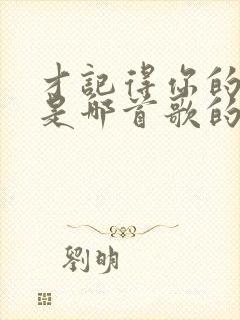 才記得你的
是那首歌的
劉明